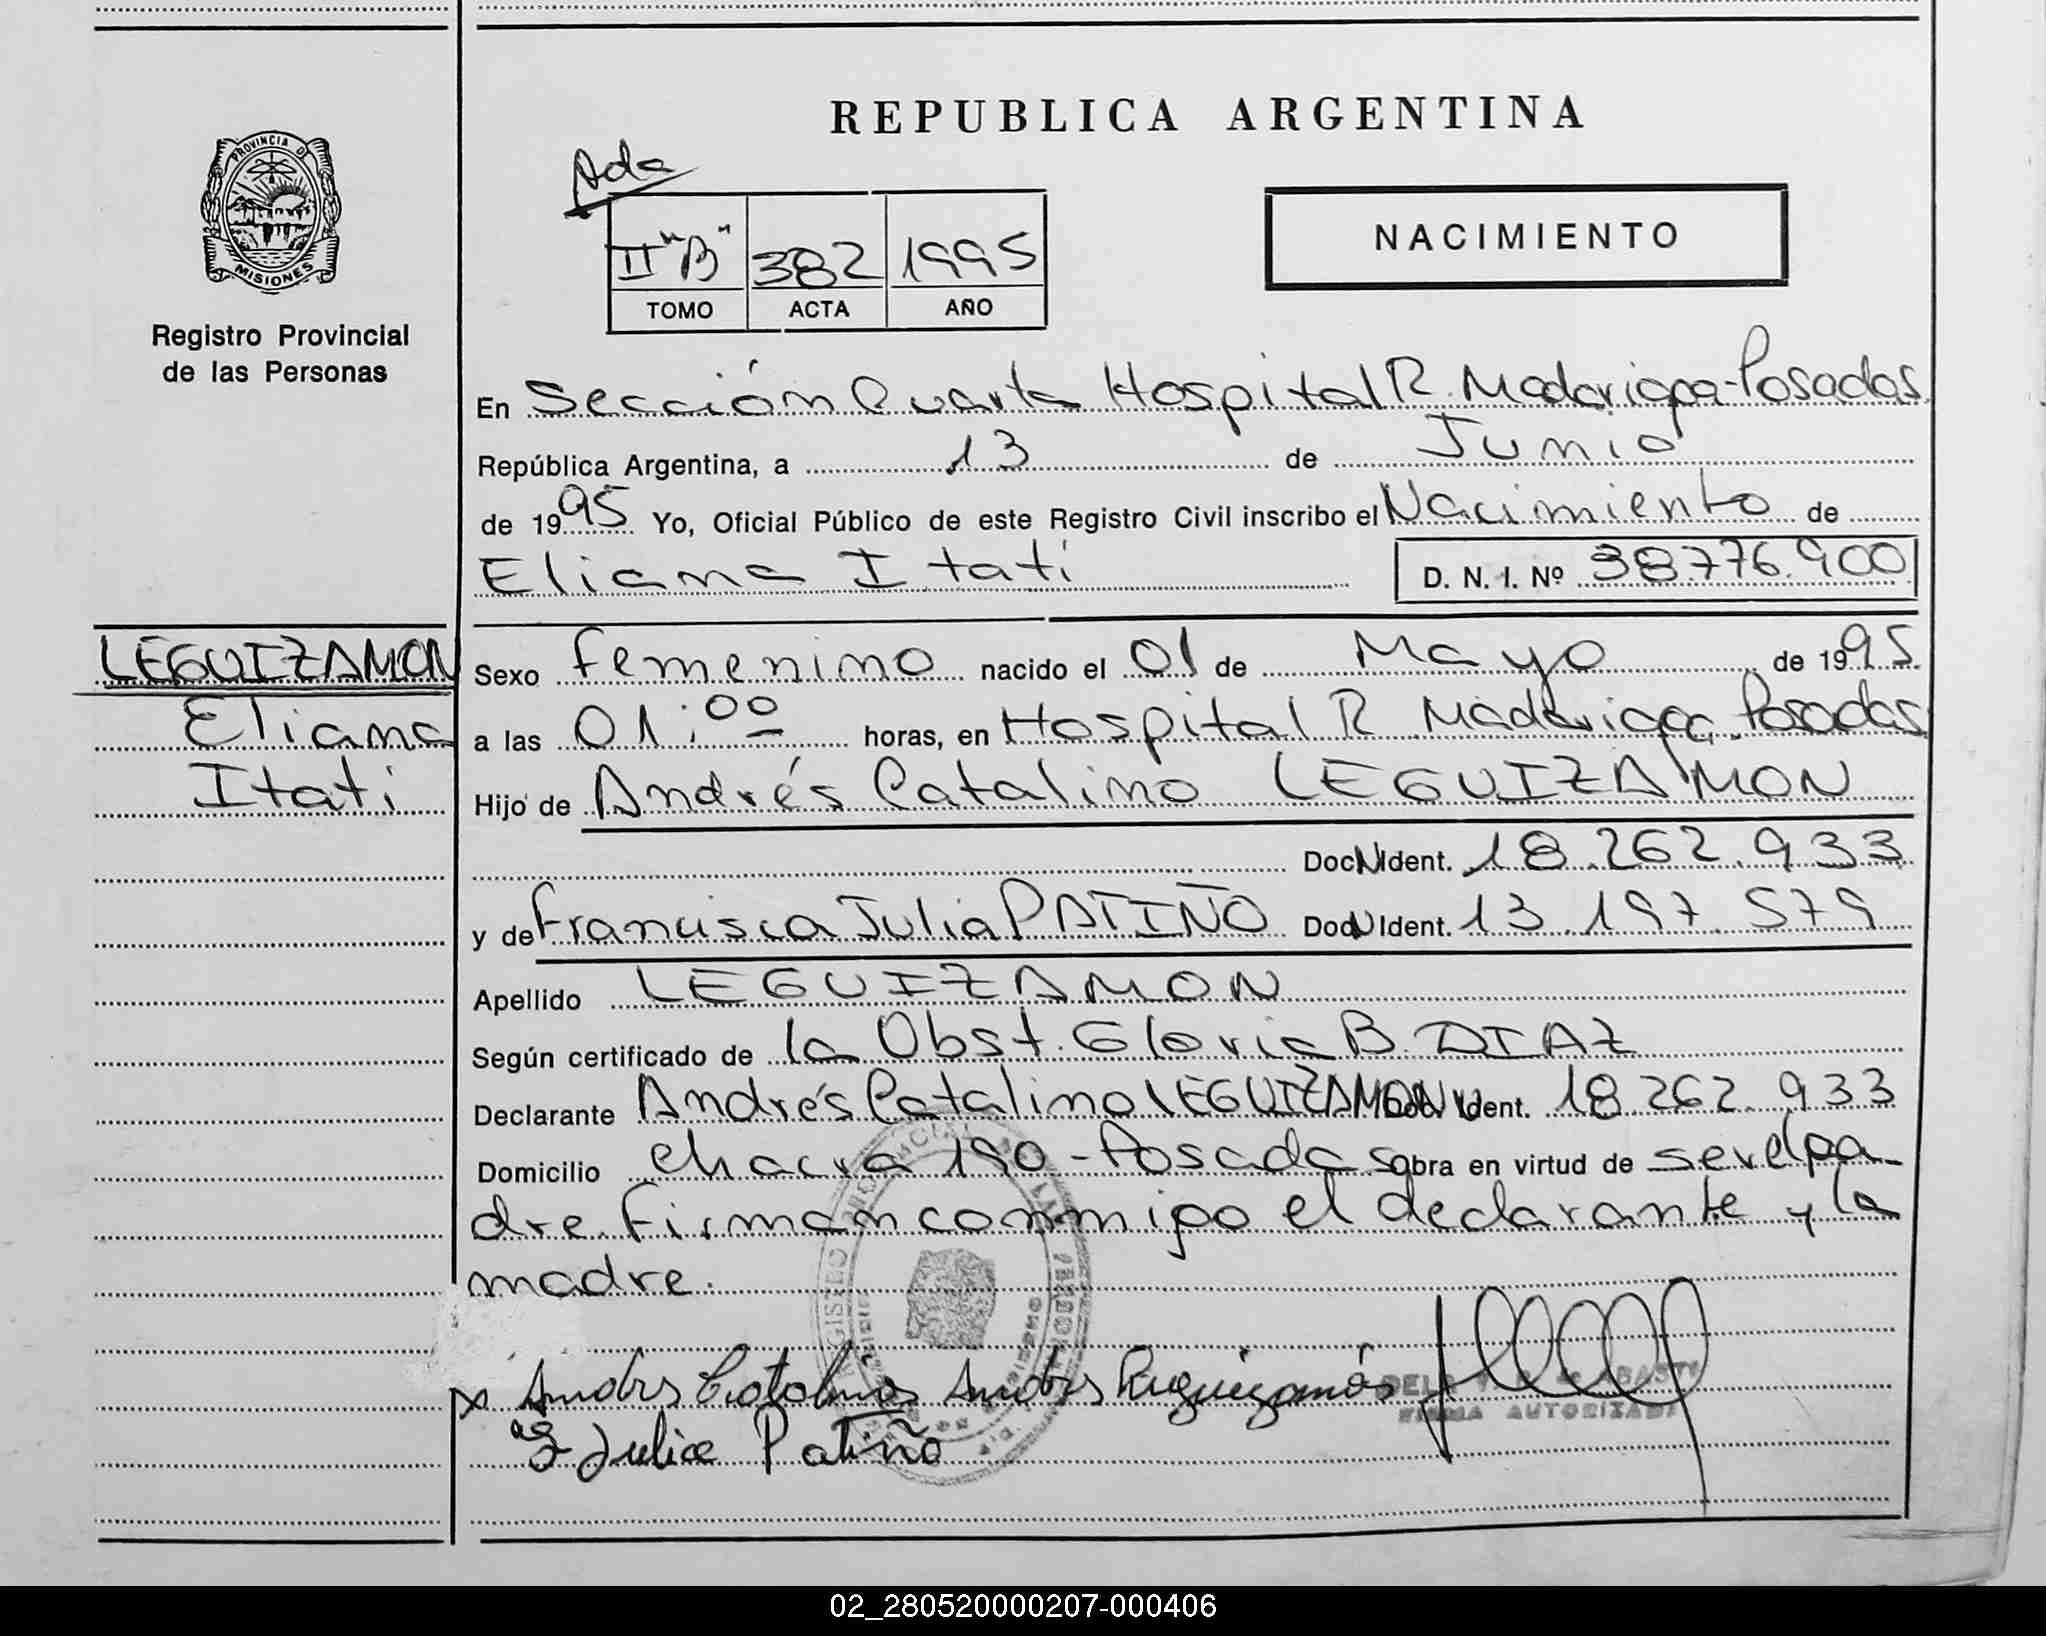 REPUBLICA ARGENTINA
PROVINCIA DE
MISIONES
Registro Provincial
de las Personas
Ada
II "B" 382 1995
TOMO ACTA AÑO
NACIMIENTO
En Sección Cuarta Hospital R. Madariaga-Posadas.
República Argentina, a 13 de Junio
de 1995 Yo, Oficial Público de este Registro Civil inscribo el Nacimiento de
Eliana Itatí D. N. I. Nº 38776.900
LEGUIZAMON
Eliana
Itatí
Sexo femenino nacido el 01 de Mayo de 1995.
a las 01:00 horas, en Hospital R. Madariaga. Posadas
Hijo de Andrés Catalino LEGUIZAMON
Doc. Ident. 18.262.933
y de Francisca Julia PATIÑO Doc. Ident. 13.197.579
Apellido LEGUIZAMON
Según certificado de la Obst. Gloria B. DIAZ
Declarante Andrés Catalino LEGUIZAMON Doc. Ident. 18.262.933
Domicilio chacra 190-Posadas obra en virtud de ser el pa-
dre. Firman conmigo el declarante y la
madre.
x Andres Leguizamón
Julia Patiño
FIRMA AUTORIZADA
02_280520000207-000406